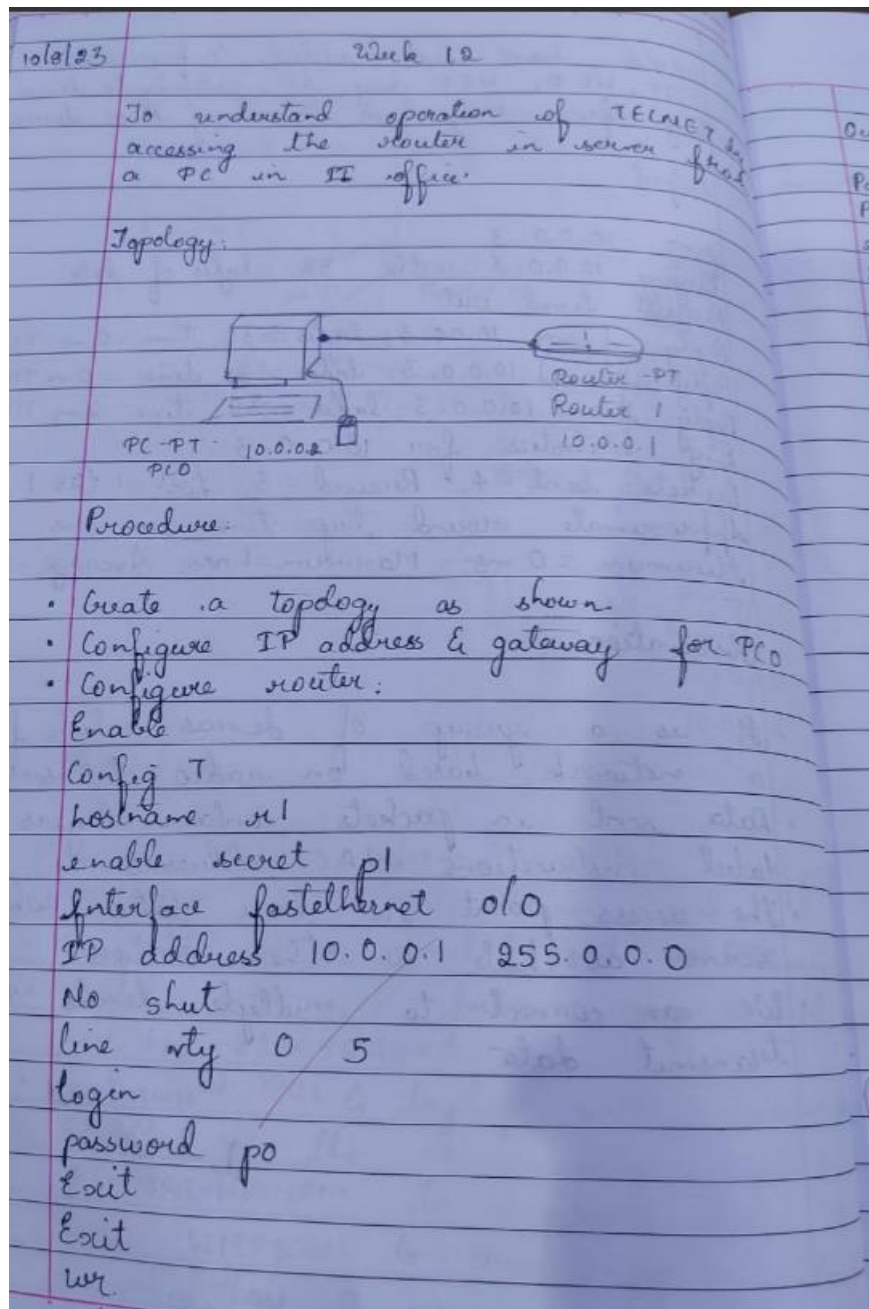 10/8/23
Week 12
To understand operation of TELNET by
accessing the router in server from
a PC in IT office.
Topology:
Router-PT
Router 1
PC-PT 10.0.0.2 10.0.0.1
PC0
Procedure:
• Create a topology as shown.
• Configure IP address & gateway for PC0
• Configure router:
Enable
Config T
hostname r1
enable secret p1
Interface fastethernet 0/0
IP address 10.0.0.1 255.0.0.0
No shut
line vty 0 5
login
password p0
Exit
Exit
wr.
Ou